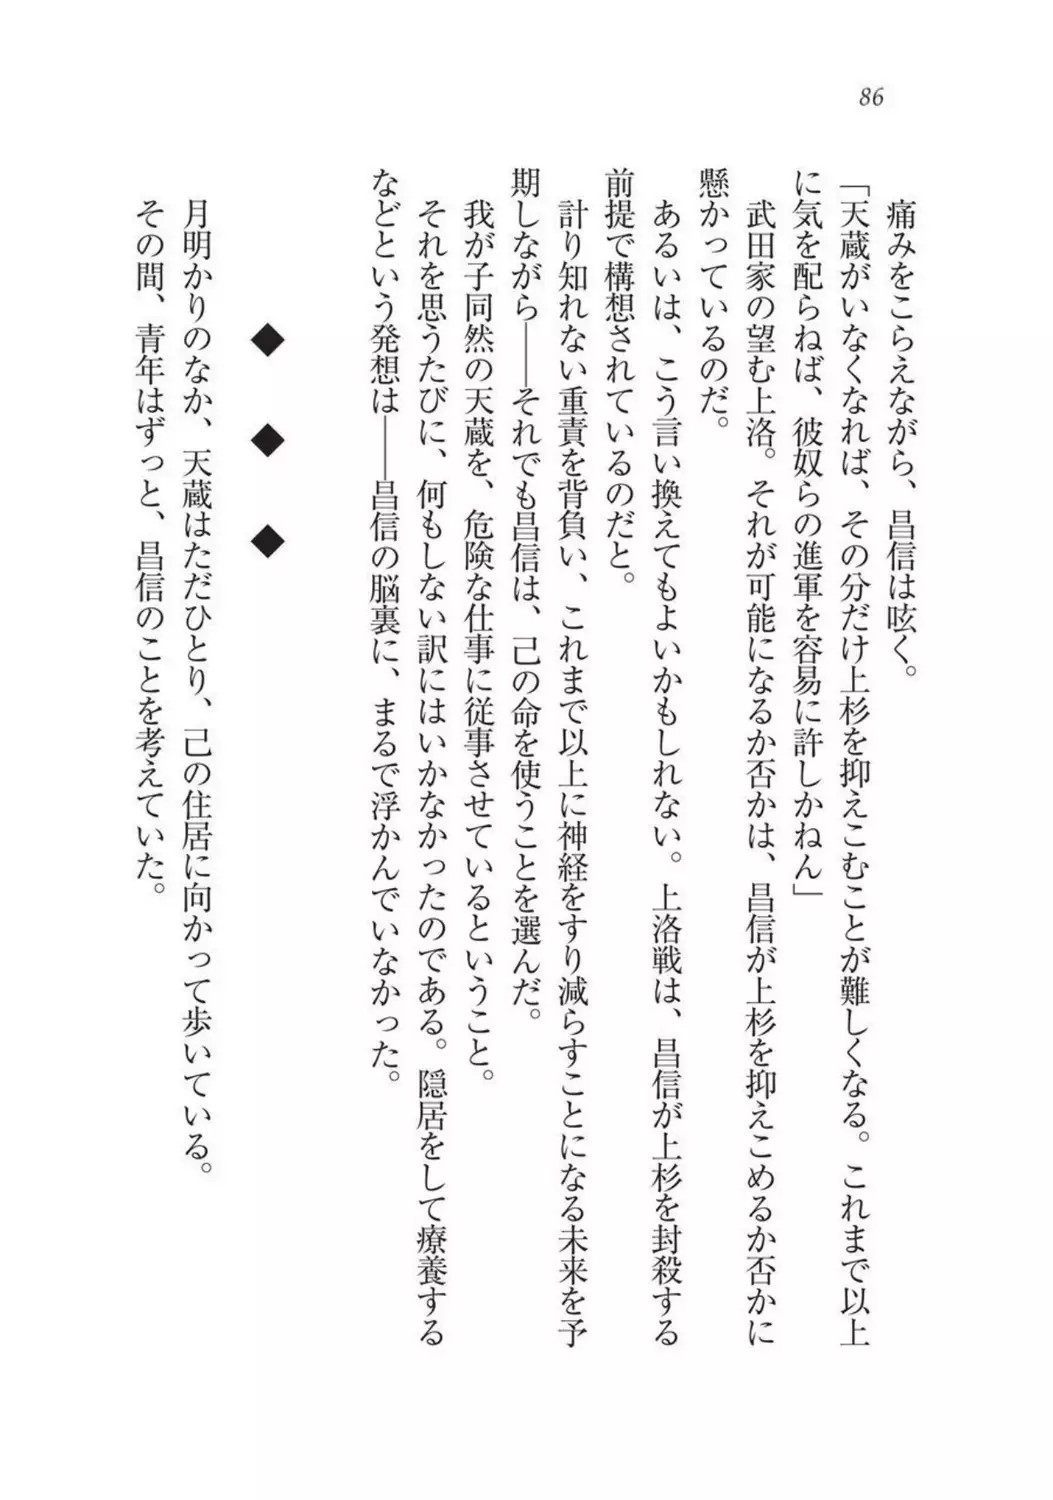 86
痛みをこらえながら、昌信は呟く。
「天蔵がいなくなれば、その分だけ上杉を抑えこむことが難しくなる。これまで以上
に気を配らねば、彼奴らの進軍を容易に許しかねん」
武田家の望む上洛。それが可能になるか否かは、昌信が上杉を抑えこめるか否かに
懸かっているのだ。
あるいは、こう言い換えてもよいかもしれない。上洛戦は、昌信が上杉を封殺する
前提で構想されているのだと。
計り知れない重責を背負い、これまで以上に神経をすり減らすことになる未来を予
期しながら――それでも昌信は、己の命を使うことを選んだ。
我が子同然の天蔵を、危険な仕事に従事させているということ。
それを思うたびに、何もしない訳にはいかなかったのである。隠居をして療養する
などという発想は――昌信の脳裏に、まるで浮かんでいなかった。
◆　◆　◆
月明かりのなか、天蔵はただひとり、己の住居に向かって歩いている。
その間、青年はずっと、昌信のことを考えていた。